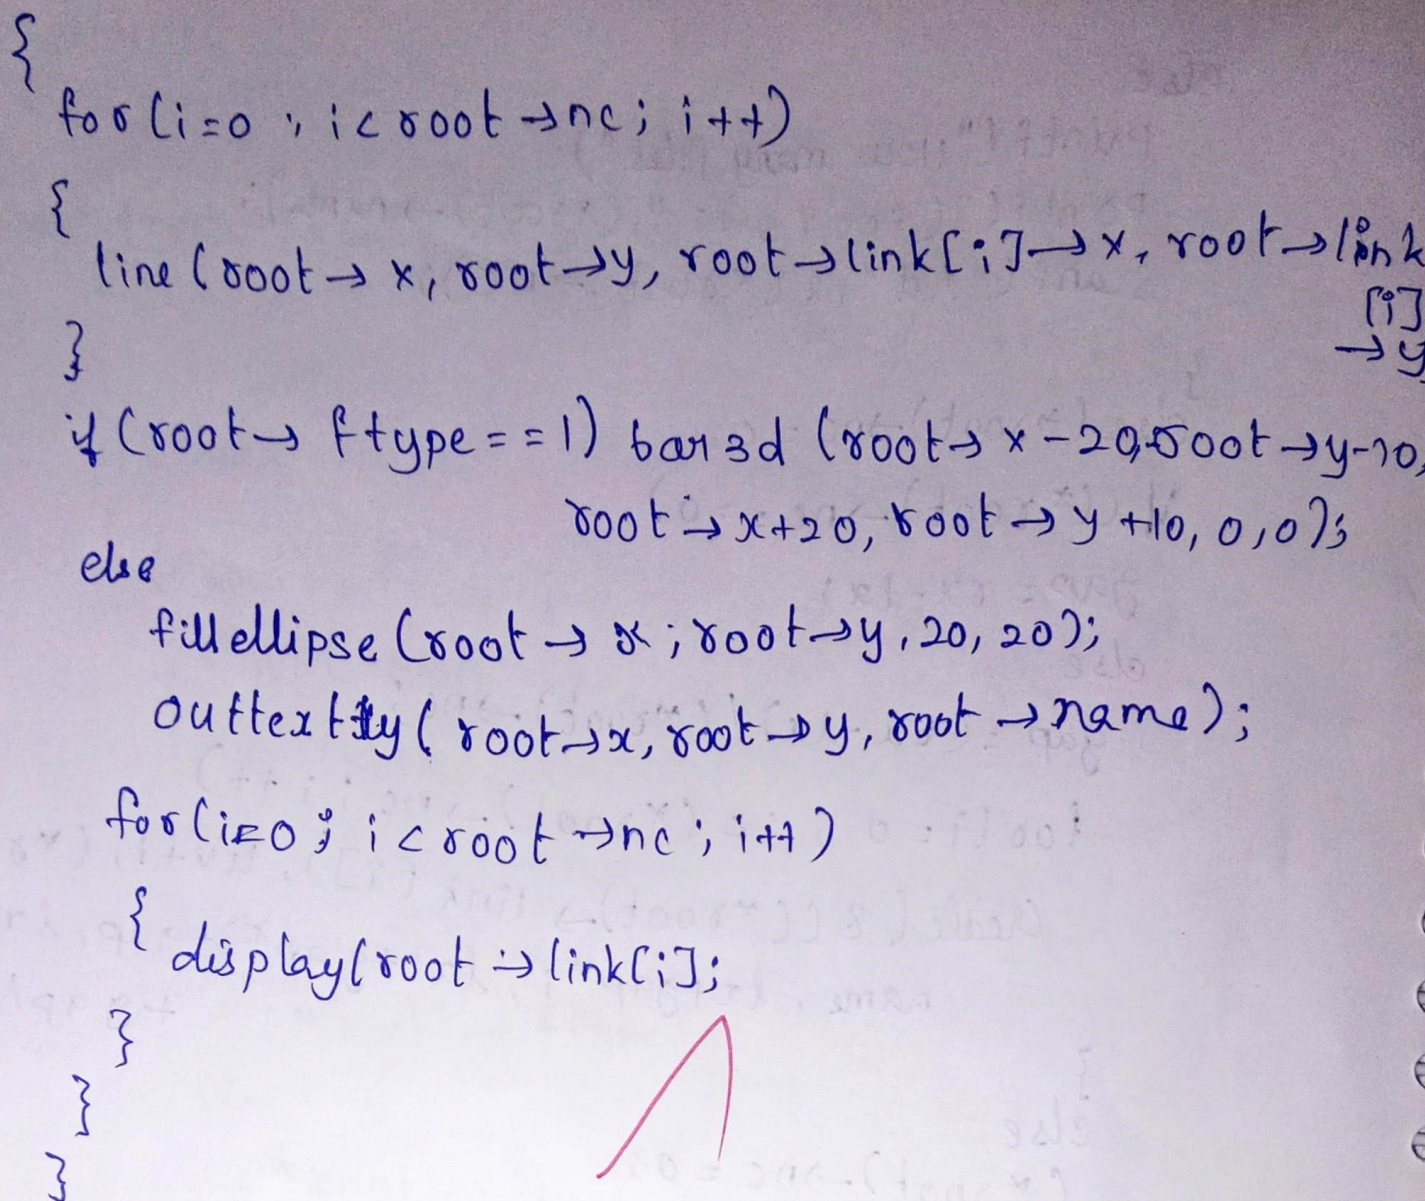 {
for(i=0 ; i<root→nc; i++)
{
line (root→x, root→y, root→link[i]→x, root→link
[i]
→y
}
if (root→ftype==1) bar3d (root→x-20,root→y-10,
root→x+20, root→y+10, 0,0);
else
fillellipse (root→x; root→y, 20, 20);
outtextty( root→x, root→y, root→name);
for(i=0; i<root→nc; i++)
{ display(root→link[i];
}
}
}